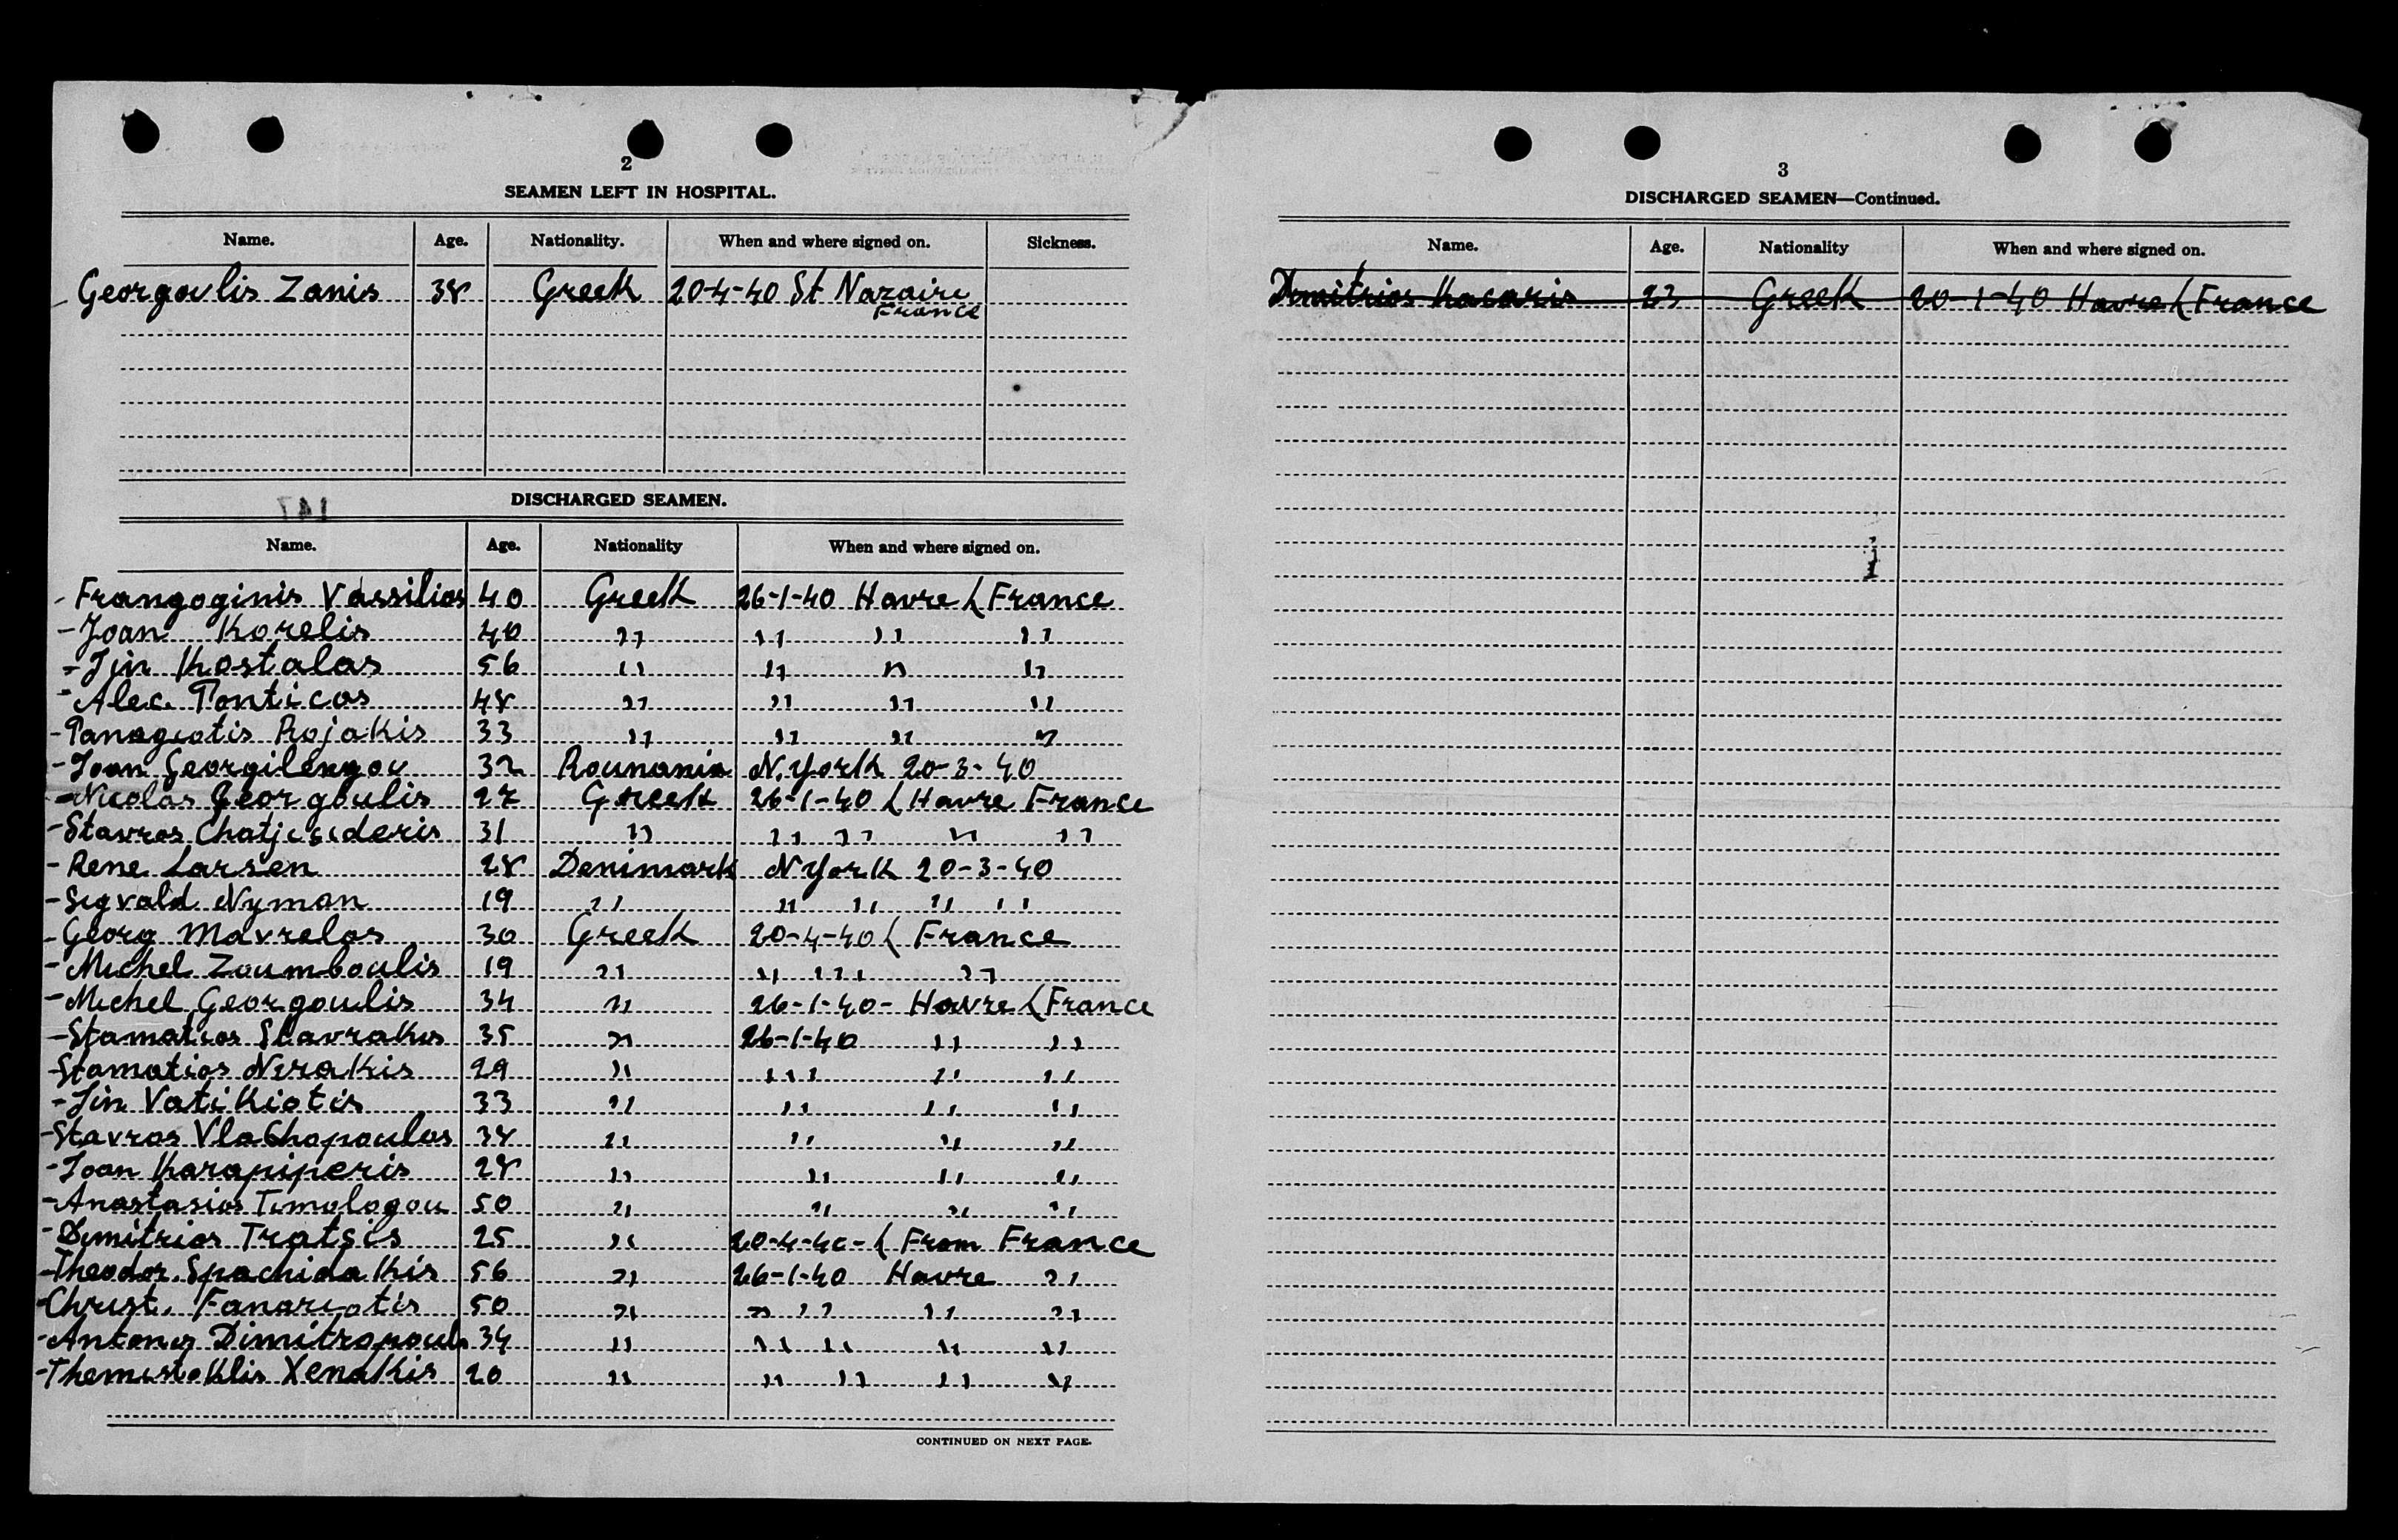 2
SEAMEN LEFT IN HOSPITAL.
Name. Age. Nationality. When and where signed on. Sickness.
Georgoulis Zanis 38 Greek 20-4-40 St Nazaire
France
DISCHARGED SEAMEN.
Name. Age. Nationality When and where signed on.
- Frangoginis Vassilios 40 Greek 26-1-40 Havre (France
- Joan Korelis 40 " " " "
- Jin Kostalas 56 " " " "
- Alec. Ponticos 48 " " " "
- Panagiotis Rojakis 33 " " " "
- Joan Georgilengou 32 Roumania N.York 20-3-40
- Nicolas Georgoulis 27 Greek 26-1-40 (Havre France
- Stavros 31 " " " " "
- Rene Larsen 28 Denimark N York 20-3-40
- Sigvald Nyman 19 " " " " "
- Georg Mavrelos 30 Greek 20-4-40 ( France
- Michel Zoumboulis 19 " " " "
- Michel Georgoulis 34 " 26-1-40- Havre (France
- Stamatios Stavrakis 35 " 26-1-40 " "
- Stamatios Nerakis 29 " " " "
- Jin Vatikiotis 33 " " " "
- Stavros Vlachopoulos 38 " " " "
- Joan Karapiperis 28 " " " "
- Anastasios Timologou 50 " " " "
- Dimitrios Tratsis 25 " 20-4-40-( From France
- Theodor. Spachidakis 56 " 26-1-40 Havre "
- Christ. Fanariotis 50 " " " " "
- Antonis Dimitropouls 34 " " " " "
- Themistoklis Xenakis 20 " " " " "
CONTINUED ON NEXT PAGE.
3
DISCHARGED SEAMEN—Continued.
Name. Age. Nationality When and where signed on.
Dimitrios Kacaris 23 Greek 20-1-40 Havre (France